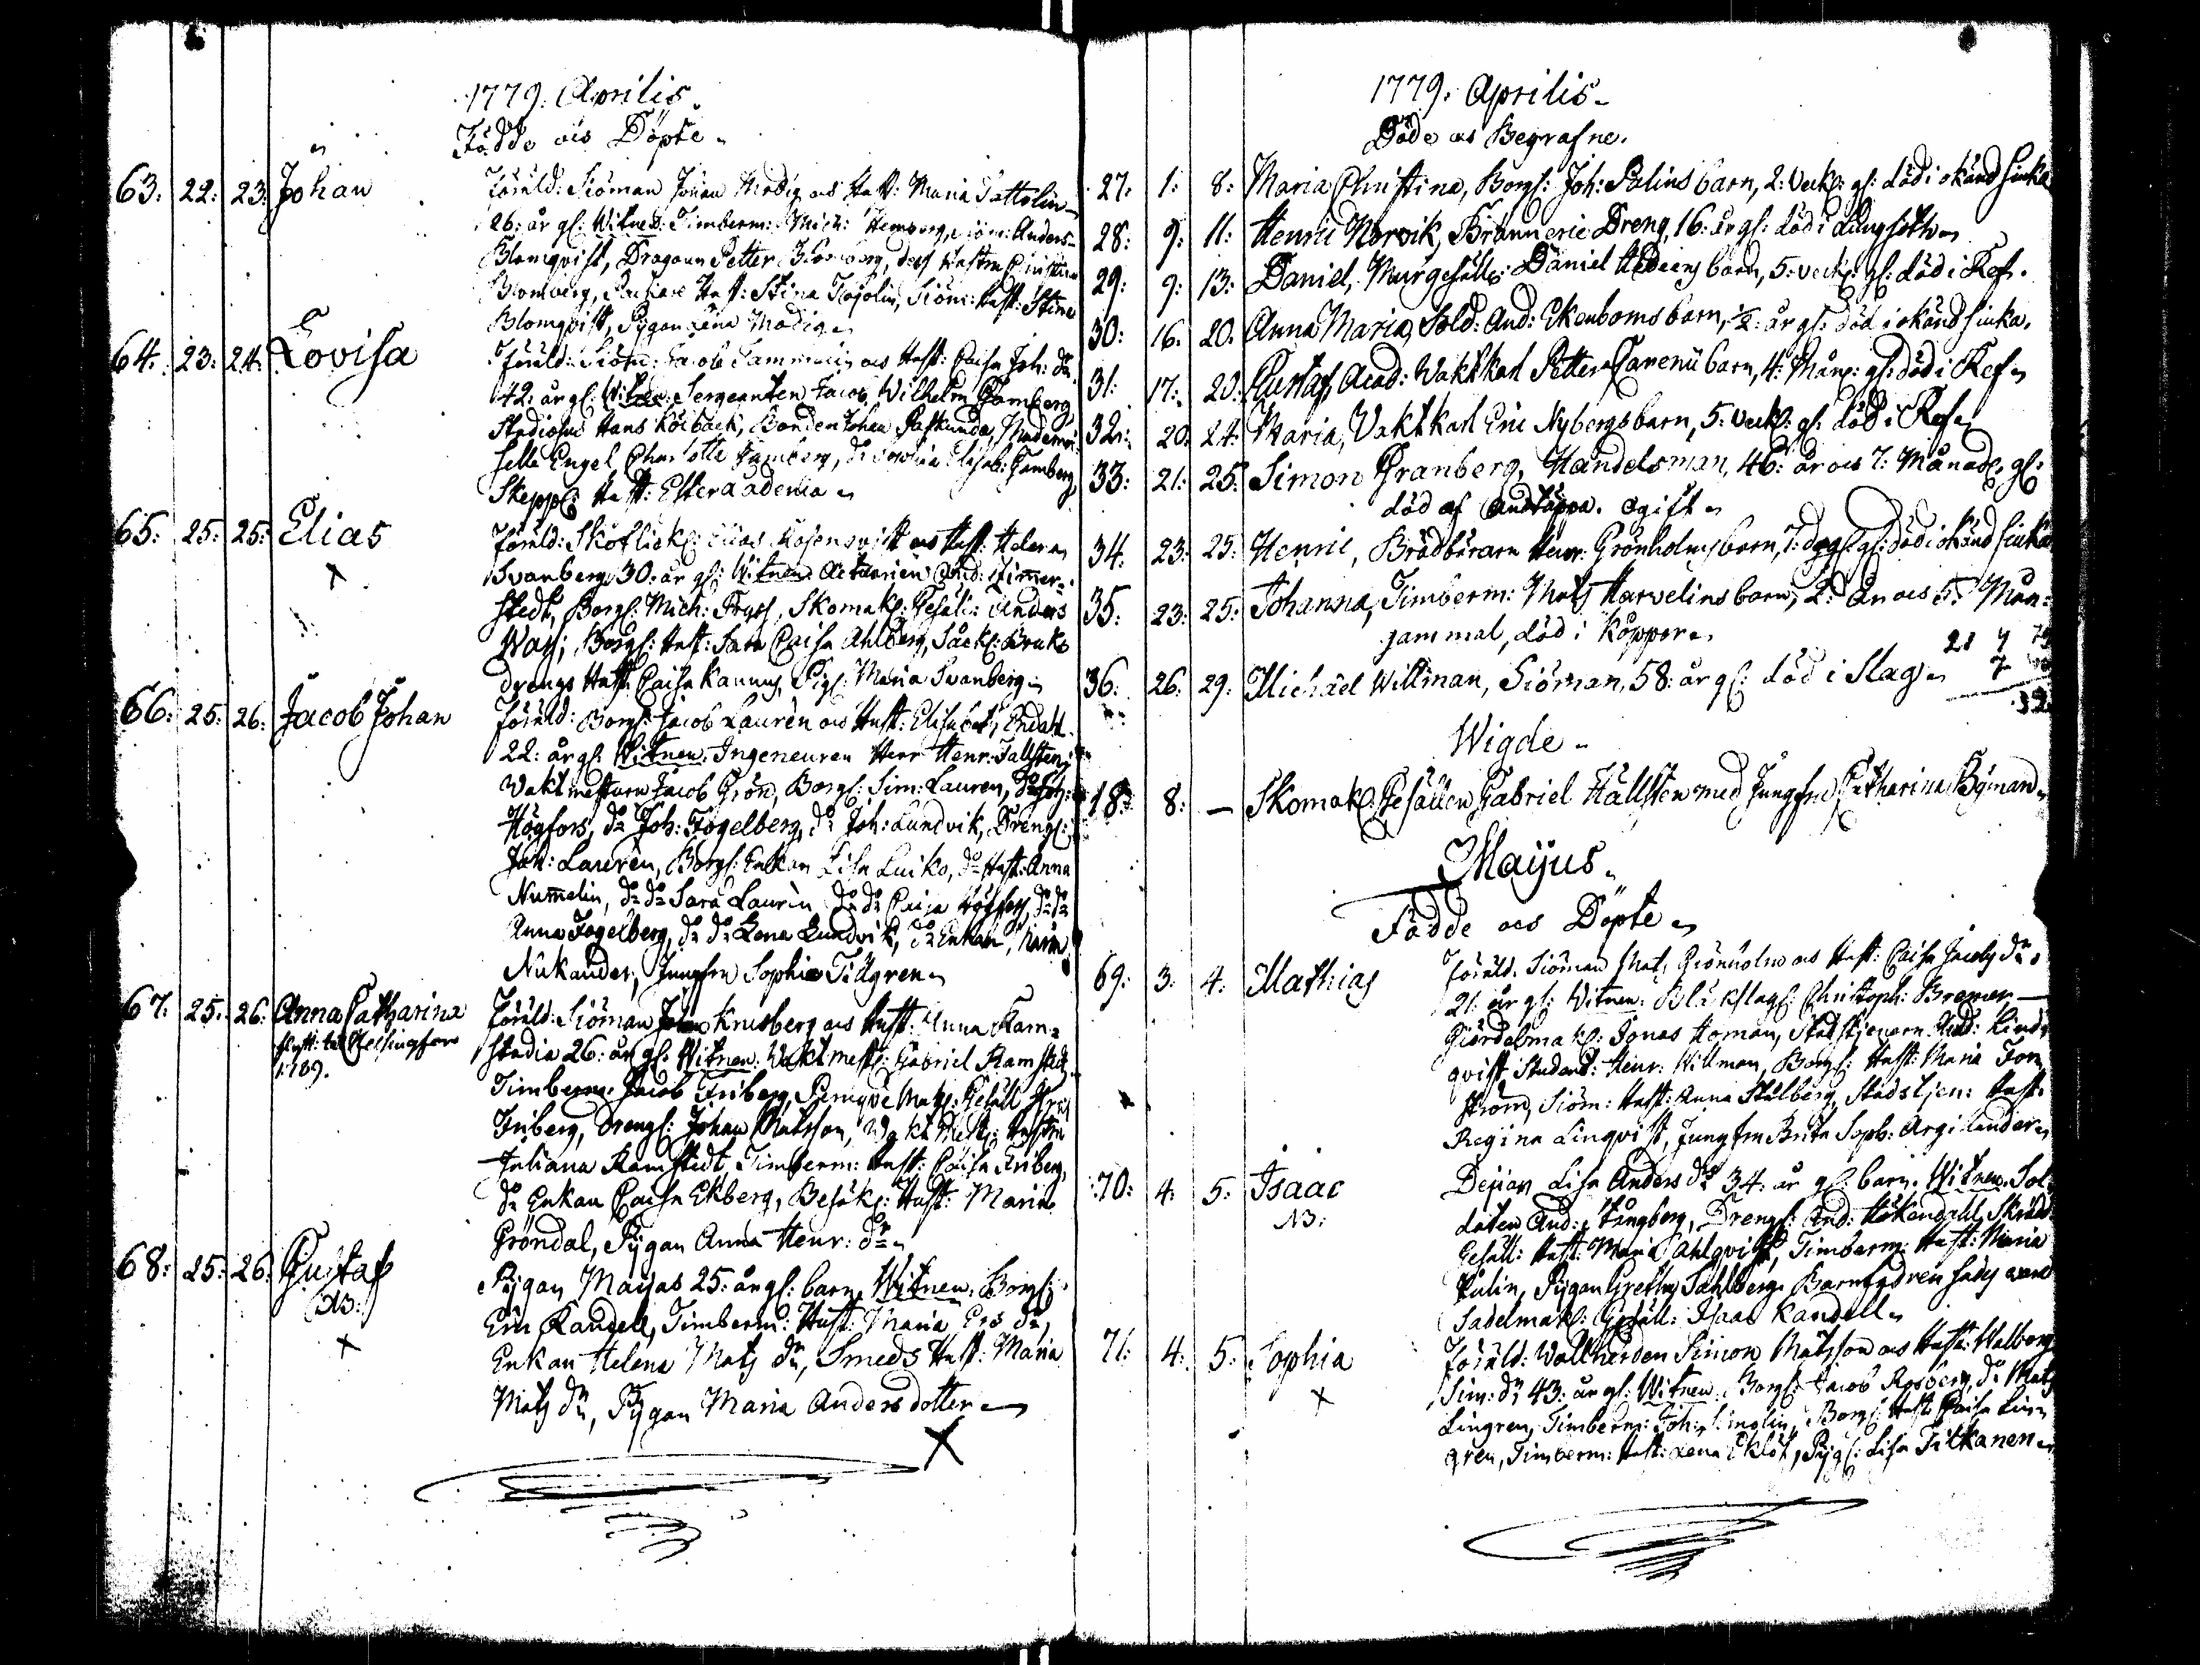 1779. Aprilis.
Födde ocs Döpte
63: 22: 23: Johan
Föräld: Siöman Johan Modig ocs Hust: Maria Tattelin
26: år gl: Witnen: Timberm: Mich: Hemberg, Siöm: Anders
Blomqvist, Dragoun Petter Blomberg, dess Hustru Christina
Blomberg, Hust: Stina Tojolin, Siöm: Hust: Stina
Blomqvist, Pygan Lena Modig
64. 23: 24. Lovisa
Föräld: Siöm: Jacob Sammelin ocs Hust: Caisa Joh: dr
42: år gl: Witnen: Sergeanten Jacob Wilhelm Tamberg
Studiosus Hans Kolback, Bonden Johan Paskunda, Mademoi
selle Engel Charlotte Tamberg, do Sophia Elisab: Tamberg
Skepp: Hust: Ester
65: 25: 25: Elias
Föräld: Skoflick: Elias Rosenqvist ocs Hust: Helena
Svanberg 30: år gl: Witnen: Actuarien And: Zimmer
stedt, Borg: Mich: Frusf, Skomak: Gesäll: Anders
Wass, Borg: Hust: Sara Caisa Ahlberg, Säck: Bruks
drengs Hust: Caisa Kannus, Pig: Maria Svanberg
66: 25: 26: Jacob Johan
Föräld: Borg: Jacob Lauren ocs Hust: Elisabet Endalt
22: år gl: Witnen: Ingeneuren Herr Henr: Tallsten
Waktmestarn Jacob Grön, Borg: Sim: Lauren, do Joh:
Högfors, do Joh: Fogelberg, do Joh: Lundvik, Dreng:
Joh: Lauren, Borg: Enkan Lisa Luiko, do Hust: Anna
Nummelin, do do Sara Laurin do do Caisa Högfors do do
Anna Fogelberg, do do Lena Lundvik, do Enkan, Karin
Nukander, Jungfru Sophia Tidgren
67. 25. 26: Anna Catharina
flytt: till Helsingfors
1789.
Föräld: Siöman Johan Krusberg ocs Hust: Anna Ram
stadia 26: år gl: Witnen: Waktmest: Gabriel Ramstedt
Timberm: Jacob Friberg, Peruque Mak: Gesäll
Friberg, Dreng: Johan Matsson, Waktmest: Hustru
Juliana Ramstedt, Timberm: Hust: Caisa Friberg,
do Enkan Caisa Ekberg, Besök: Hust: Maria
Gröndal, Pygan Anna Henr: dr
68: 25: 26: Gustaf
NB:
Pygan Mayas 25: år gl: barn. Witnen: Borg:
Eric Randell, Timberm: Hust: Maria Ers dr,
Enkan Helena Mats dr, Smeds Hust: Maria
Mats dr, Pygan Maria Anders dotter
1779. Aprilis
Döde ocs Begrafne.
27: 1: 8: Maria Christina, Borg: Joh: Palins barn, 2: Veck: gl: död i okänd siuka
28: 9: 11: Henric Norvik, Brännerie Dreng, 16: år gl: död i Lungsöth
29: 9: 13: Daniel, Murgesälls: Daniel Hedeens barn, 5: veck: gl: död i Kef.
30: 16. 20. Anna Maria, Sold: And: Ekenboms barn, ½: år gl: död i okänd siuka.
31: 17: 20: Gustaf, Acad: Waktkarl Petter Tarenii barn, 4: Mån: gl: död i Kef
32: 20: 24: Maria, Vaktkarl Eric Nybergs barn, 5: Veck: gl: död i Kef
33: 21: 25: Simon Granberg, Handelsman, 46: år ocs 7: Månad: gl:
död af Andtäppa. Ogift
34. 23: 25: Henric, Brödbärarn Henr: Grönholms barn, 7: dag: gl: död i okänd siuka
35: 23: 25: Johanna, Timberm: Mats Harvelins barn, 2: År ocs 5: Mån:
gammal, död i Koppor
36. 26: 29: Michäel Willman, Siöman, 58: år gl: död i Slag
Wigde
18: 8: — Skomak: Gesällen Gabriel Hällsten med Jungfru Catharina Byman
Mayus.
Födde ocs Döpte
69: 3: 4: Mathias
Föräld: Siöman Mat: Grönholm ocs Hust: Caisa Jacobs dr
21: år gl: Witnen: Bläckslag: Christoph: Bremer
Giördelmak: Jonas Homan, Stadstjenarn And: Lind
qvist Student: Henr: Willman, Borg: Hust: Maria Fors
ström, Siöm: Hust: Anna Stålberg, Stadstjen: Hust:
Regina Linqvist, Jungfru Brita Soph: Argilander
70: 4: 5: Isaac
NB:
Depian Lisa Anders dr 34: år gl: barn. Witnen: Sol
daten And: Tångberg, Dreng: And: Häkendahl, Skräd:
Gesäll: Hust: Maria Sahlqvist, Timberm: Hust: Maria
Palin, Pygan Greta Sahlberg. Barnfadren sades vara
Sadelmak: Gesäll: Isaac Kandell
71: 4: 5: Sophia
Föräld: Vallherden Simon Matsson ocs Hust: Walborg
Sim: dr 43: år gl: Witnen: Borg: Jacob Rosberg, do Mats
Lingren, Timberm: Joh: Borg: Hust: Caisa Lin
gren, Timberm: Hust: Lena Eklöf, Pyg: Lisa Titkanen